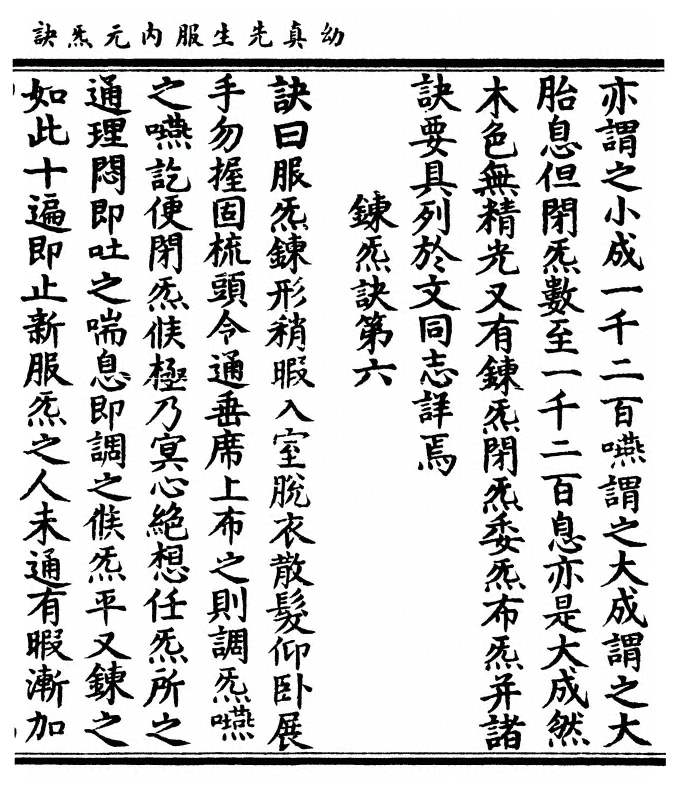 幼真先生服内元炁訣
亦謂之小成一千二百嚥謂之大成謂之大
胎息但閉炁數至一千二百息亦是大成然
木色無精光又有鍊炁閉炁委炁布炁并諸
訣要具列於文同志詳焉
鍊炁訣第六
訣曰服炁鍊形稍暇入室脫衣散髮仰卧展
手勿握固梳頭令通垂席上布之則調炁嚥
之嚥訖便閉炁候極乃冥心絶想任炁所之
通理悶即吐之喘息即調之候炁平又鍊之
如此十遍即止新服炁之人未通有暇漸加